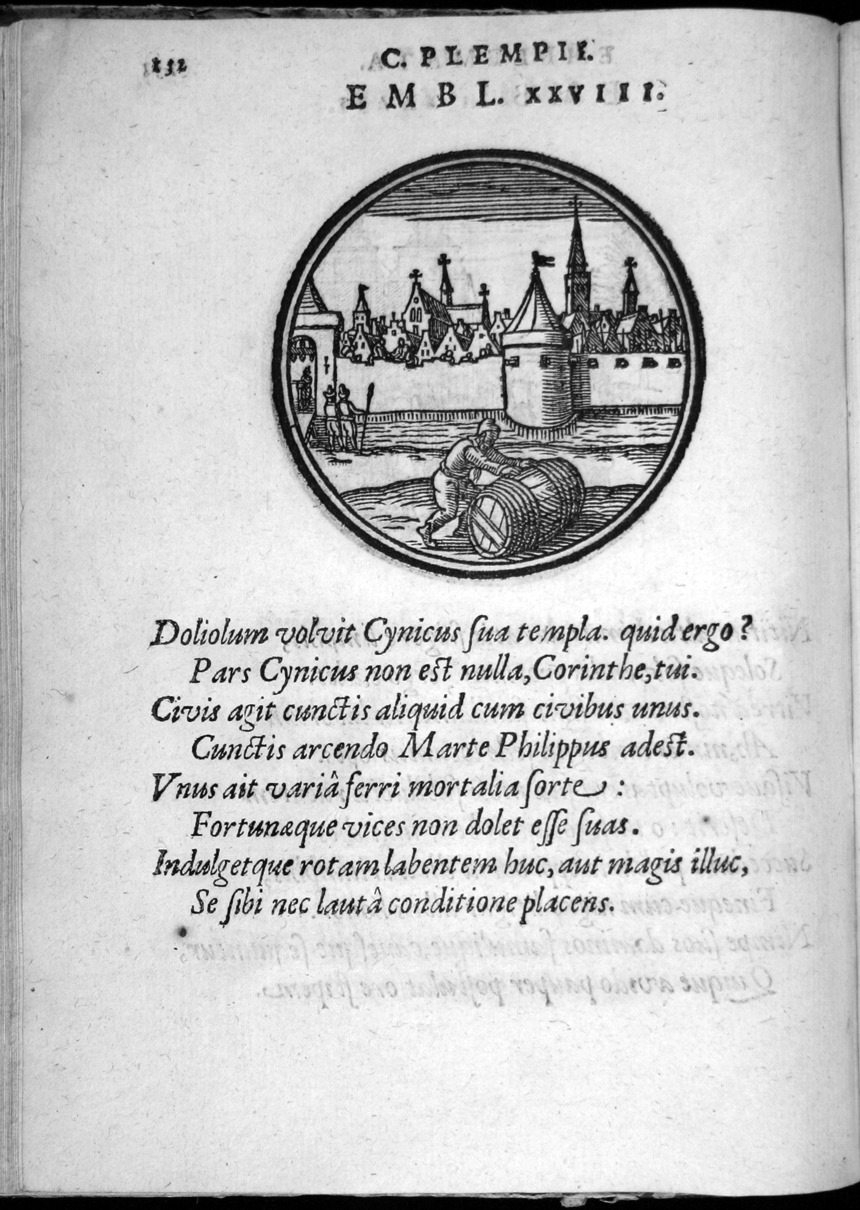 152
C. PLEMPII.
EMBL. XXVIII.
Doliolum volvit Cynicus ſua templa. quid ergo?
Pars Cynicus non eſt nulla, Corinthe, tui.
Civis agit cunctis aliquid cum civibus unus.
Cunctis arcendo Marte Philippus adeſt.
Vnus ait variâ ferri mortalia ſorte :
Fortunæque vices non dolet eſſe ſuas.
Indulgetque rotam labentem huc, aut magis illuc,
Se ſibi nec lautâ conditione placens.